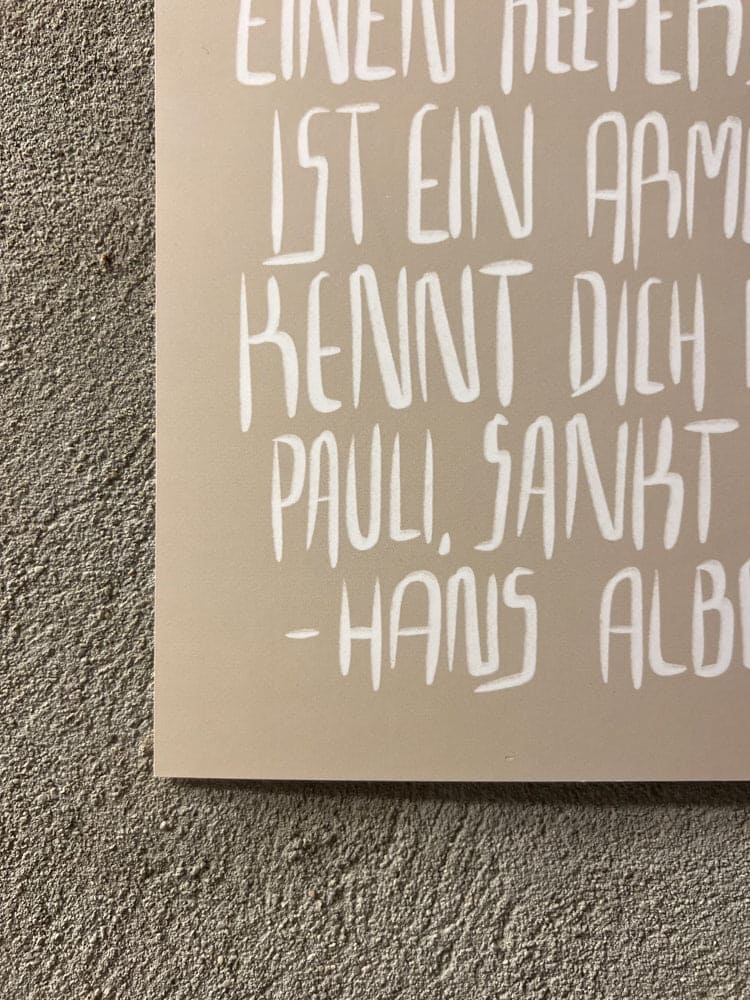 EINEN REEPER
IST EIN ARME
KENNT DICH
PAULI, SANKT
-HANS ALB